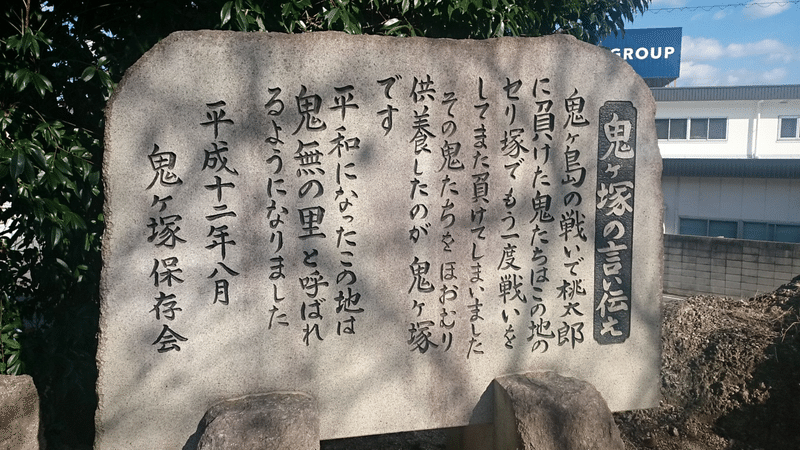 鬼ヶ塚の言い伝え
鬼ヶ島の戦いで桃太郎
に負けた鬼たちはこの地の
セリ塚でもう一度戦いを
してまた負けてしまいました
その鬼たちをほおむり
供養したのが 鬼ヶ塚
です
平和になったこの地は
鬼無の里と呼ばれ
るようになりました
平成十二年八月
鬼ヶ塚保存会
GROUP